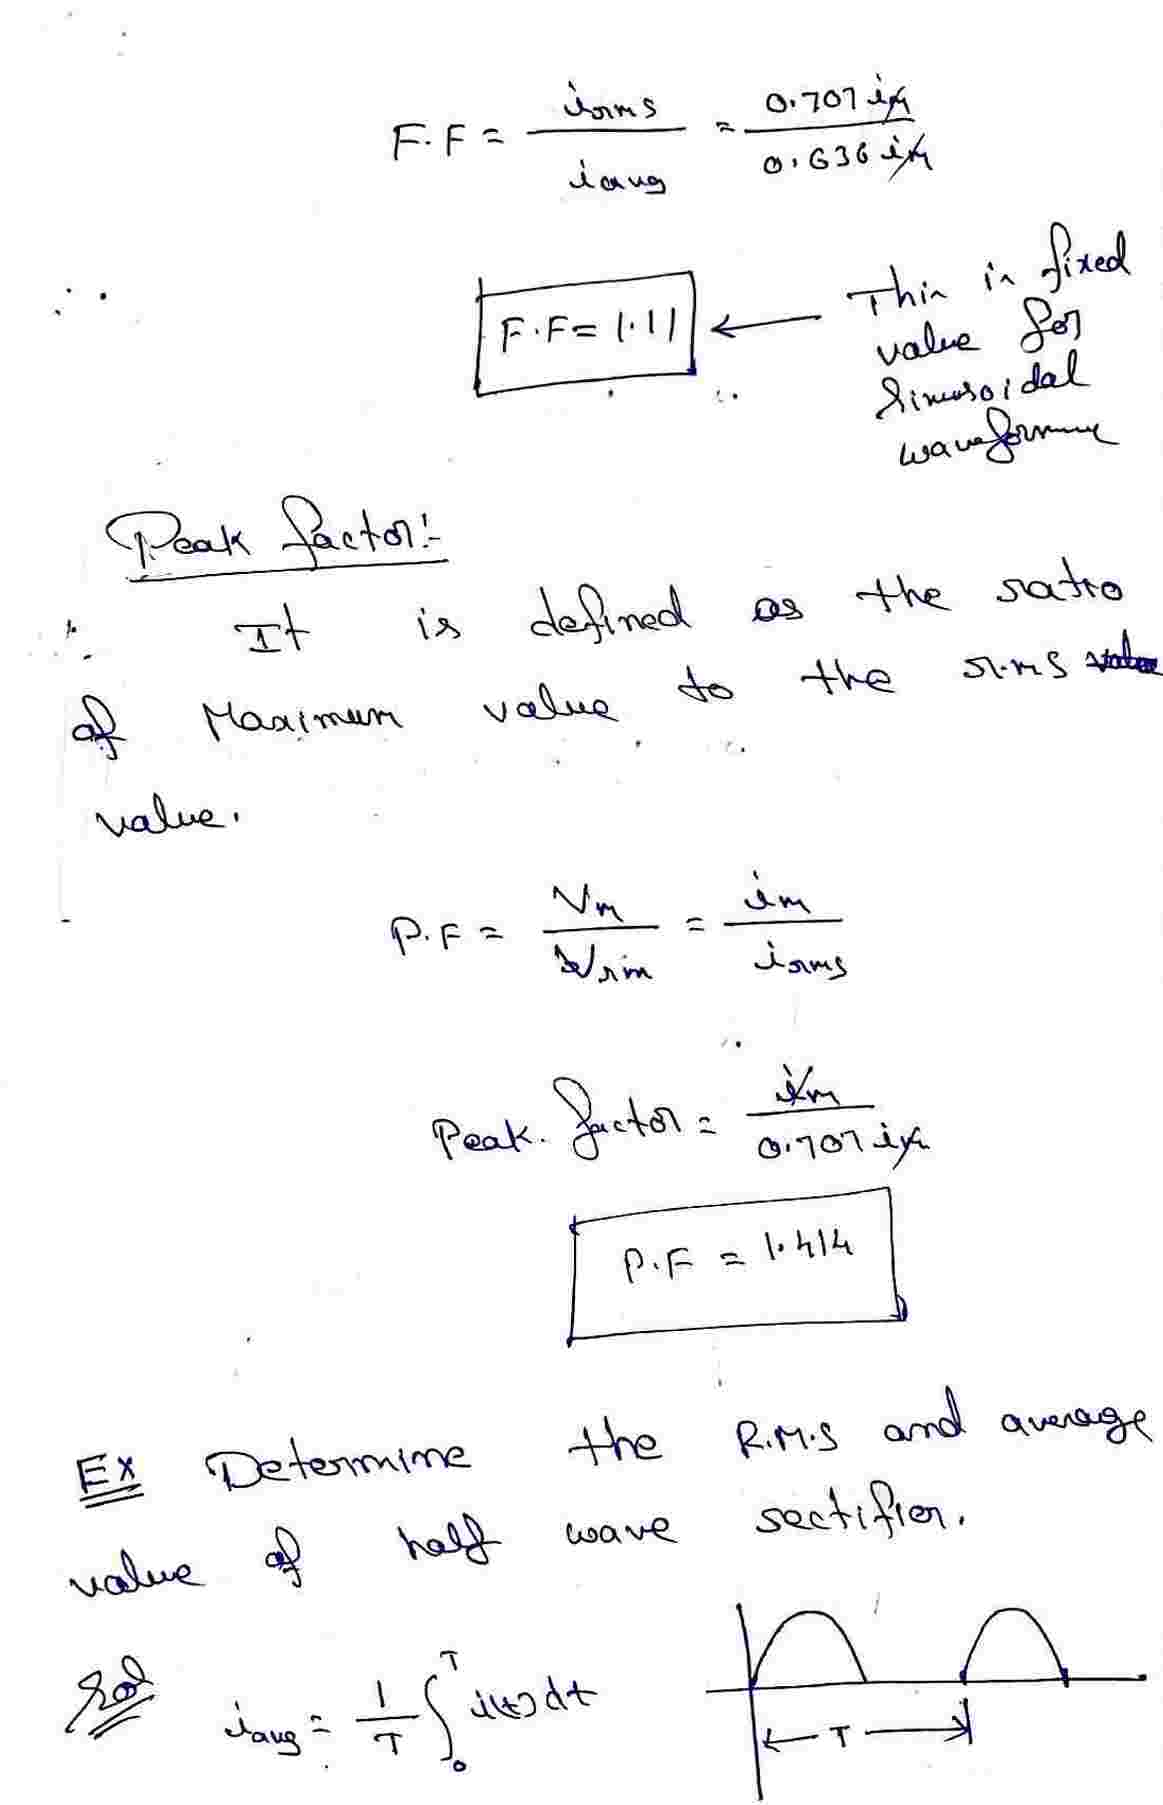 F.F = irms / iavg = 0.707 im / 0.636 im
∴ F.F = 1.11 ← This is fixed
value for
Sinusoidal
waveforme
Peak factor:-
It is defined as the ratio
of Maximum value to the r.m.s
value.
P.F = Vm / Vrm = im / irms
Peak. factor = im / 0.707 im
P.F = 1.414
Ex Determine the R.M.S and average
value of half wave rectifier.
Sol iavg = 1/T ∫₀ᵀ i(t) dt
← T →